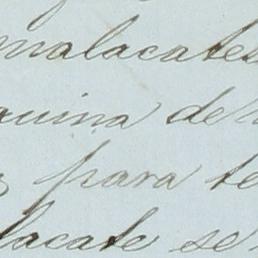 malacates
quina de
para te
lacate se